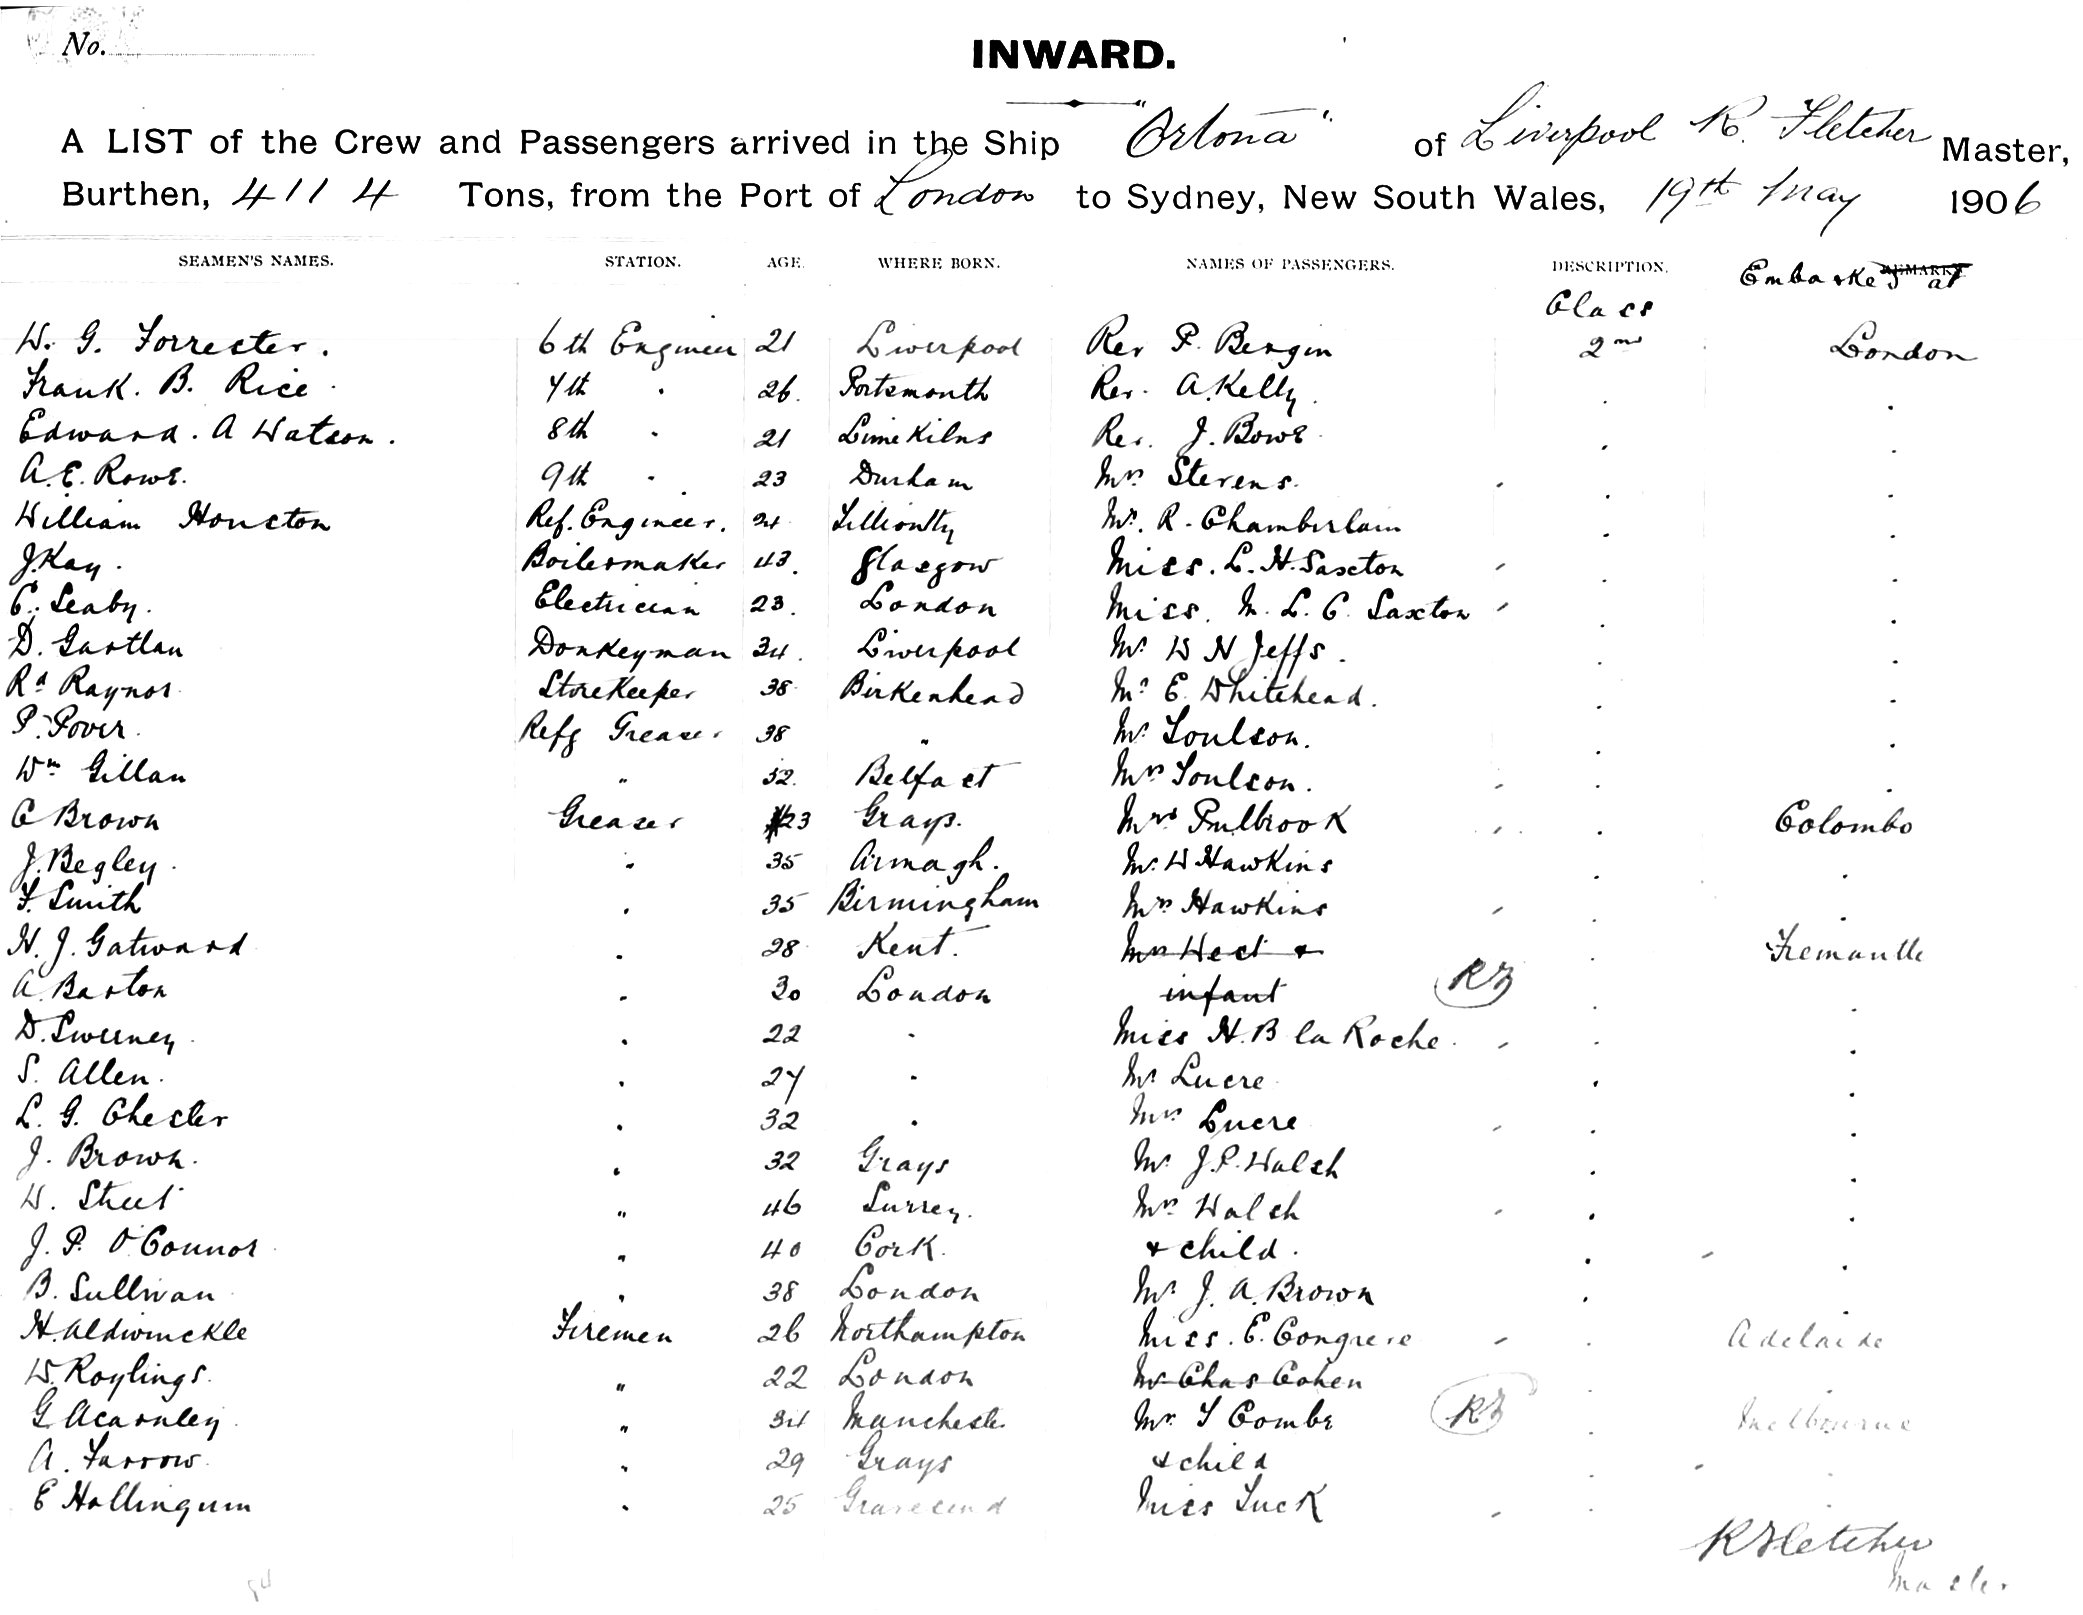 No.
INWARD.
A LIST of the Crew and Passengers arrived in the Ship "Ortona" of Liverpool R. Fletcher Master,
Burthen, 4114 Tons, from the Port of London to Sydney, New South Wales, 19th May 1906
SEAMEN'S NAMES. STATION. AGE. WHERE BORN. NAMES OF PASSENGERS. DESCRIPTION. REMARKS Embarked at
Class
W. G. Forrester. 6th Engineer 21 Liverpool Rev P. Bergin 2nd London
Frank. B. Rice 7th " 26. Portsmouth Rev. A. Kelly "  "
Edward. A Watson. 8th " 21 Lime Kilns Rev. J. Bowe " "
A. E. Rowe. 9th " 23 Durham Mrs Stevens. " "
William Houston Ref. Engineer. 24 Mr. R. Chamberlain " "
J. Kay. Boilermaker 43. Glasgow Miss. L. H. Saxton " "
C. Seaby. Electrician 23. London Miss. M. L. C. Saxton " "
D. Gartlan Donkeyman 34. Liverpool Mr W H Jeffs. " "
Rd Raynor Storekeeper 38 Birkenhead Mr E. Whitehead. " "
P. Pover. Refg Greaser 38 " Mr Toulson. " "
Wm Gillan " 52. Belfast Mrs Toulson. " "
C Brown Greaser 23 Grays. Mrs Pulbrook " Colombo
J. Begley. " 35 Armagh. Mr. W Hawkins " "
F. Smith " 35 Birmingham Mrs Hawkins " "
H. J. Gatward " 28 Kent. Mrs Hect & " Fremantle
A. Barton " 30 London infant RF " "
D. Sweeney " 22 " Miss H. B la Roche " "
S. Allen. " 27 " Mr Lucre " "
L. G. Chester " 32 " Mrs Lucre " "
J. Brown. " 32 Grays Mr J. P. Walsh " "
W. Street " 46 Surrey. Mrs Walsh " "
J. P. O'Connor " 40 Cork. & child. " "
B. Sullivan " 38 London Mr J. A. Brown " "
H. Aldwinckle Firemen 26 Northampton Miss. E. Congreve " Adelaide
W. Roylings. " 22 London Mr Chas Cohen " "
G Acarnley " 34 Manchester Mr. T Combe RF " Melbourne
A. Farrow " 29 Grays & child " "
E Hollingum " 25 Gravesend Miss Tuck " "
R Fletcher
Master